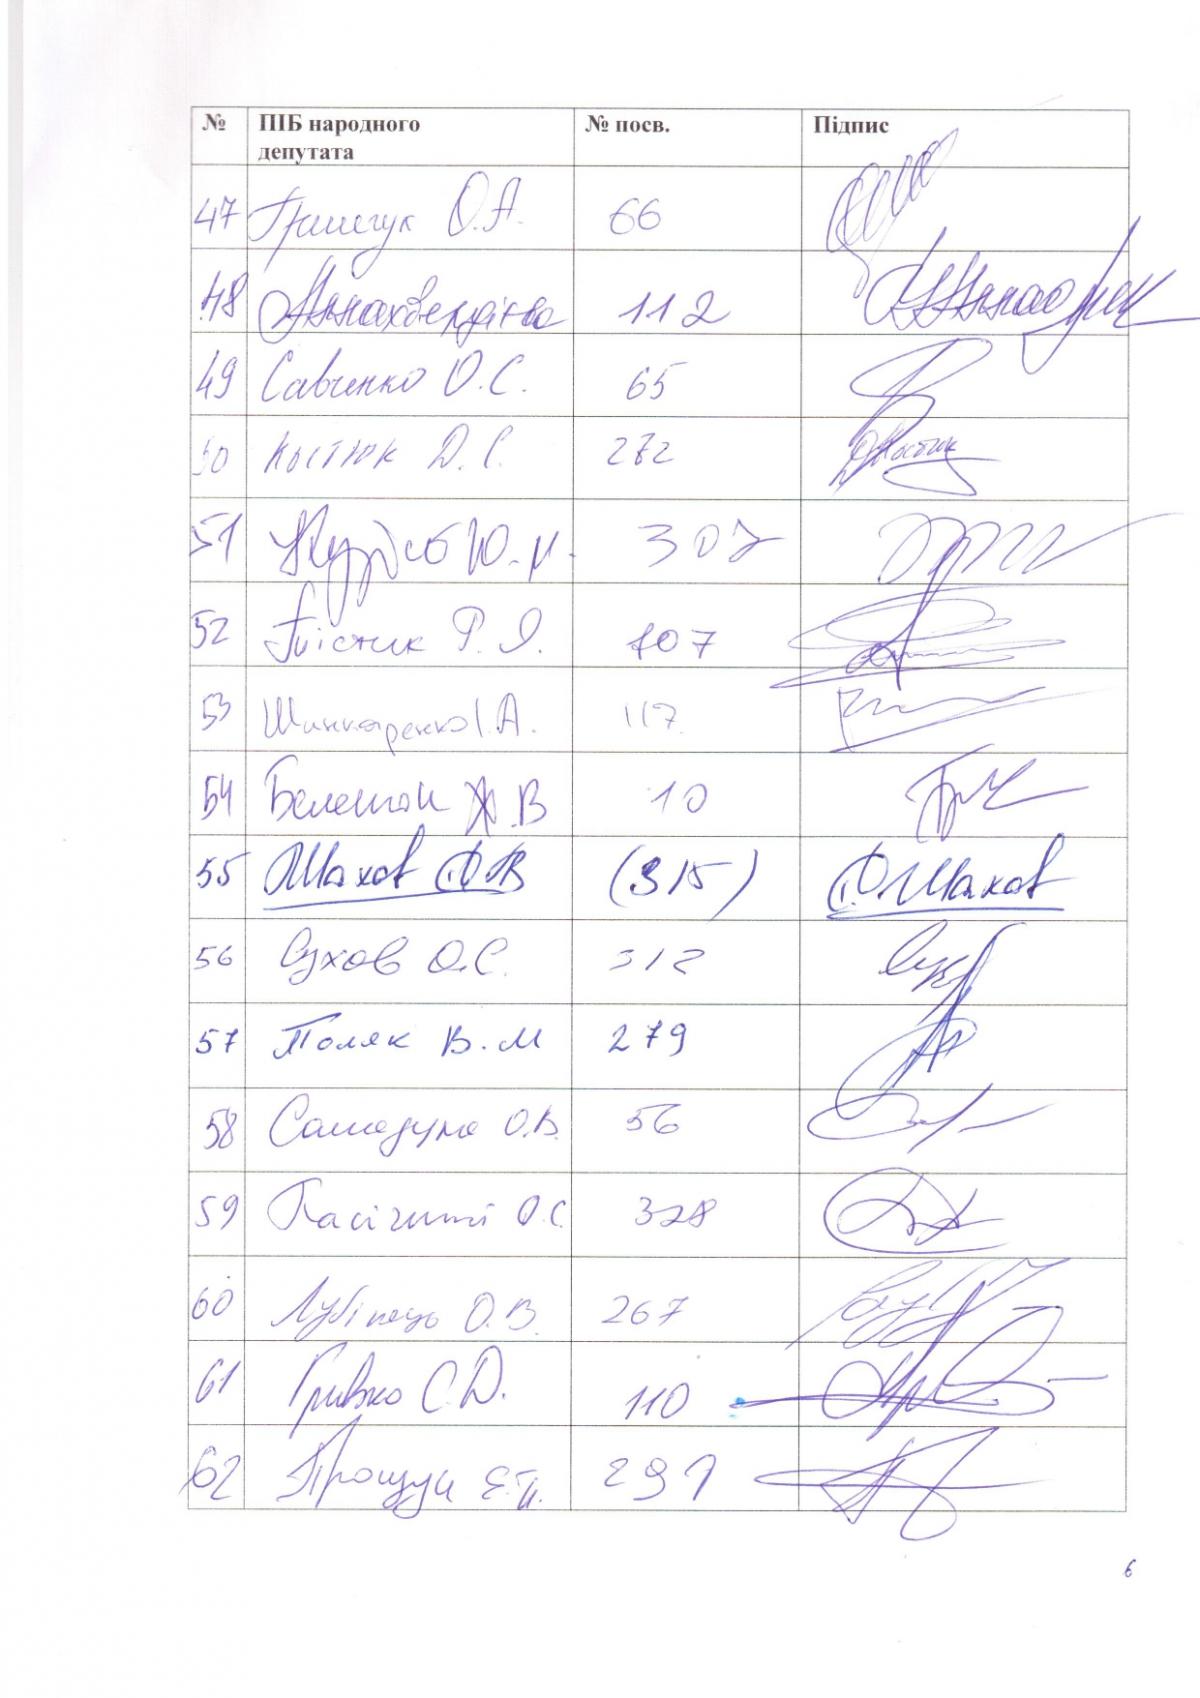 № ПІБ народного депутата № посв. Підпис
47 Грищук О.А. 66
48 Аллахвердієва 112
49 Савченко О.С. 65
50 Костюк Д.С. 272
51 Ю. 307
52 Підласа Р. 107
53 Шинкаренко І.А. 117
54 В 10
55 Шахов С.В (315) С.Шахов
56 Сухов О.С. 312
57 Поляк В.М 279
58 О.В. 56
59 Пасічний О.С. 328
60 Лубінець О.В. 267
61 Гривко С.Д. 110
62 Прощук Е.П. 291
6